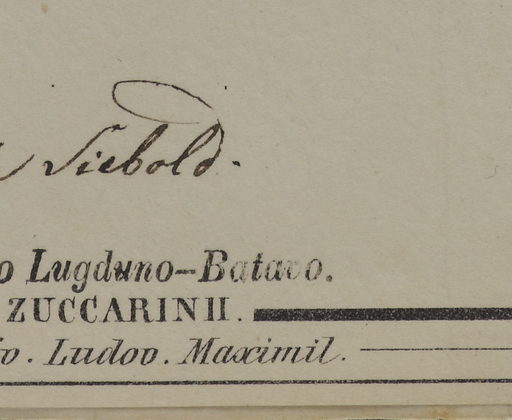 Siebold.
o Lugduno-Batavo.
ZUCCARINII.
. Ludov. Maximil.